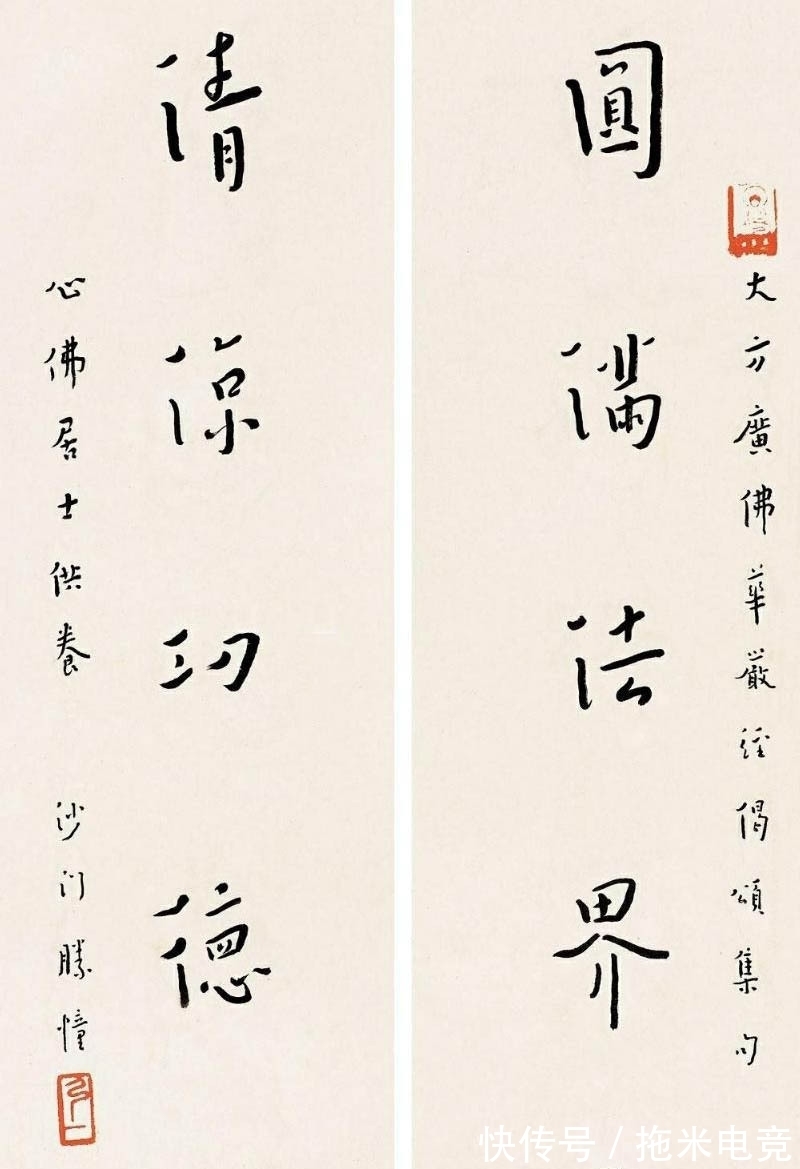 大方廣佛華嚴經偈頌集句
圓滿法界
清涼功德
心佛居士供養 沙門勝幢
快传号 / 拖米电竞